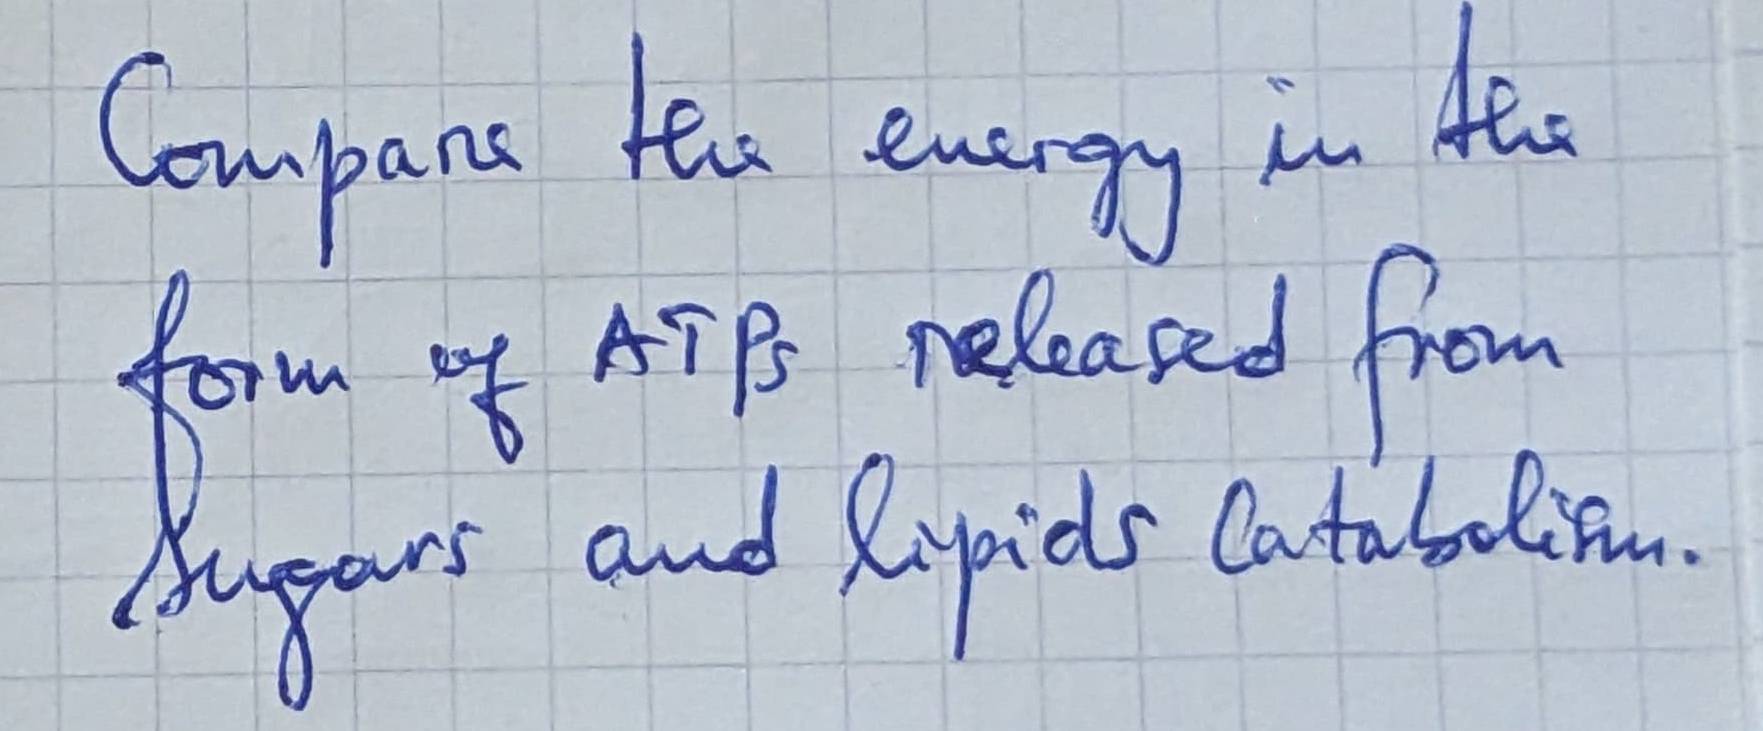 Compare the energy in the
form of ATPs released from
sugars and lipids catabolism.